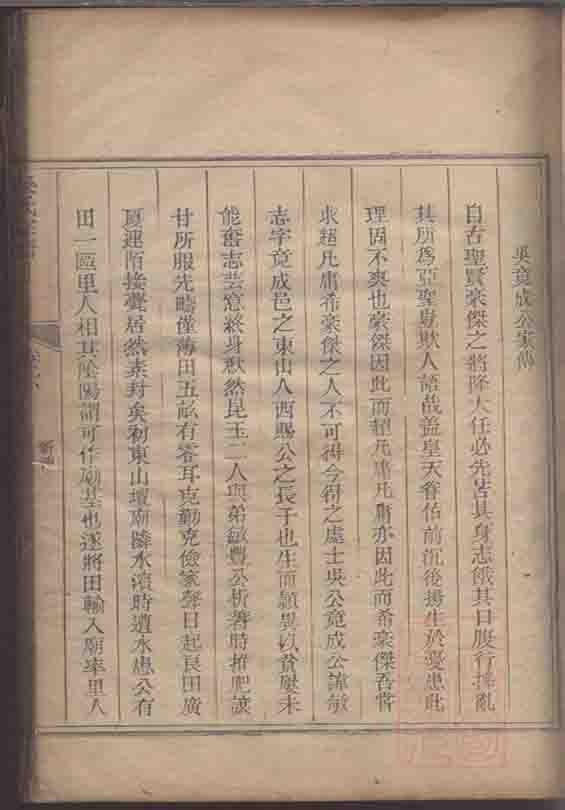 吳竟成公家傳
自古聖賢豪傑之將降大任必先苦其身志餓其口腹行拂亂
其所為亞聖豈欺人語哉蓋皇天眷佑前沉後揚生於憂患此
理固不爽也豪傑因此而超凡庸凡庸亦因此而希豪傑吾嘗
求超凡庸希豪傑之人不可得今得之處士吳公竟成公諱敏
志字竟成邑之東山人西賜公之長子也生而穎異以貧屢未
能奮志芸窓終身歉然昆玉二人與弟敏豐公析箸時推肥讓
甘所服先疇僅薄田五畝有零耳克勤克儉家聲日起良田廣
厦連陌接甍居然素封矣初東山壇廟隣水濱時遭水患公有
田一區里人相其陰陽謂可作廟基也遂將田輸入廟率里人